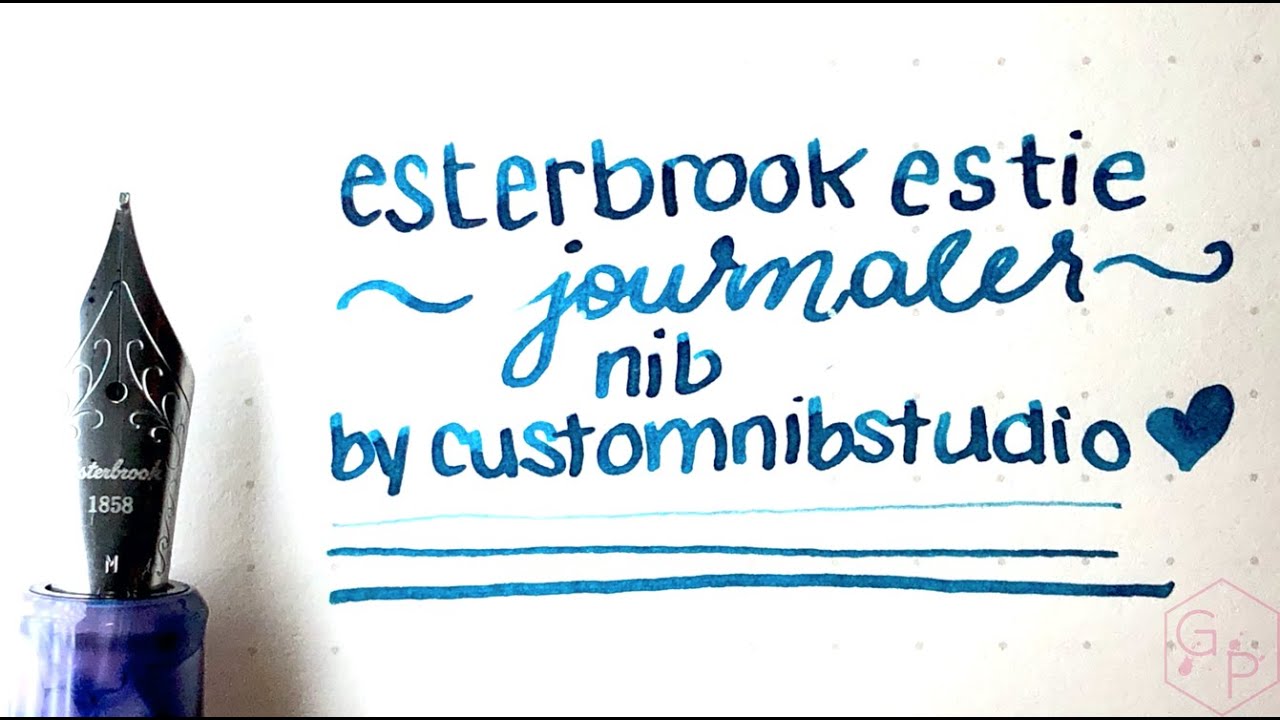 esterbrook estie
~ journaler ~
nib
by customnibstudio ♥
Esterbrook
1858
M
G P